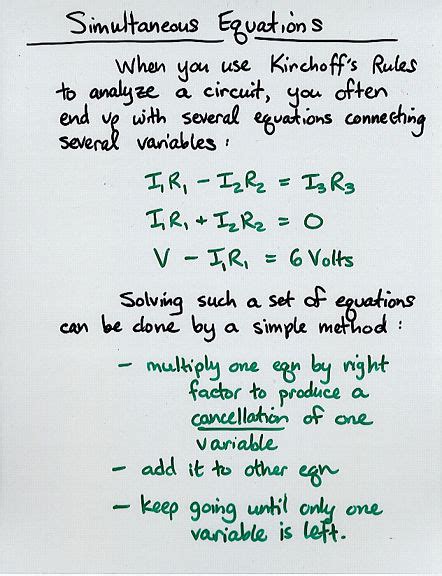 Simultaneous Equations
When you use Kirchoff's Rules
to analyze a circuit, you often
end up with several equations connecting
several variables :
I₁R₁ − I₂R₂ = I₃R₃
I₁R₁ + I₂R₂ = 0
V − I₁R₁ = 6 Volts
Solving such a set of equations
can be done by a simple method :
− multiply one eqn by right
factor to produce a
cancellation of one
variable
− add it to other eqn
− keep going until only one
variable is left.